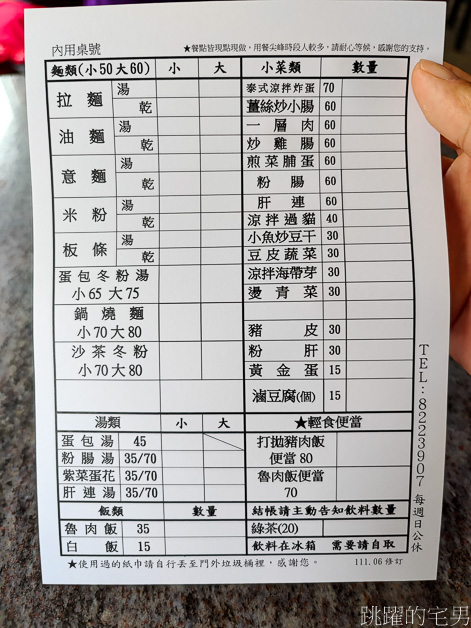 內用桌號
★餐點皆現點現做，用餐尖峰時段人較多，請耐心等候，感謝您的支持。
麵類(小50大60) 小 大
拉麵 湯
乾
油麵 湯
乾
意麵 湯
乾
米粉 湯
乾
板條 湯
乾
蛋包冬粉湯
小65 大75
鍋燒麵
小70大80
沙茶冬粉
小70大80
湯類 小 大
蛋包湯 45
粉腸湯 35/70
紫菜蛋花 35/70
肝連湯 35/70
飯類 數量
魯肉飯 35
白飯 15
小菜類 數量
泰式涼拌炸蛋 70
薑絲炒小腸 60
一層肉 60
炒雞腸 60
煎菜脯蛋 60
粉腸 60
肝連 60
涼拌過貓 40
小魚炒豆干 30
豆皮蔬菜 30
涼拌海帶芽 30
燙青菜 30
豬皮 30
粉肝 30
黃金蛋 15
滷豆腐(個) 15
★輕食便當
打拋豬肉飯
便當 80
魯肉飯便當
70
結帳請主動告知飲料數量
綠茶(20)
飲料在冰箱 需要請自取
TEL:8223907 每週日公休
★使用過的紙巾請自行丟至門外垃圾桶裡，感謝您。
111.06 修訂
跳躍的宅男